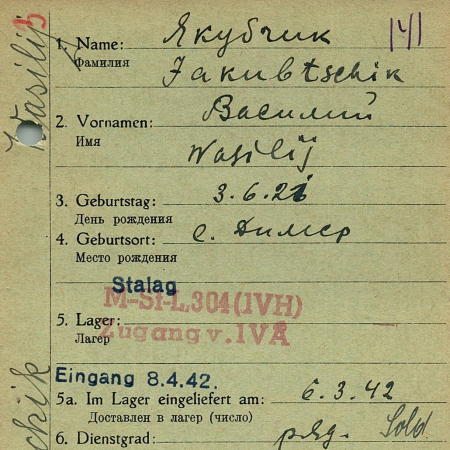 1. Name: Якубчик
Фамилия
Jakubtschik
2. Vornamen: Василий
Имя
Wasilij
3. Geburtstag: 3.6.21
День рождения
4. Geburtsort: с. Димер
Место рождения
Stalag
M-St-L.304(IVH)
5. Lager:
Zugang v. IVA
Лагер
Eingang 8.4.42.
5a. Im Lager eingeliefert am: 6.3.42
Доставлен в лагер (число)
6. Dienstgrad: ряд. Sold
Wasilij
chik